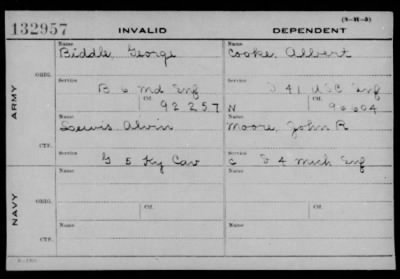 (3-H-3)
132957 INVALID DEPENDENT
Name Name
Biddle, George Cooke, Albert
ORIG.
Service Service
B 6 Md Inf D 41 USC Inf
Ctf. Ctf.
92257 N 96604
ARMY
Name Name
Lewis Alvin Moore, John R
CTF.
Service Service
G 5 Ky Cav C D 4 Mich Inf
Name Name
NAVY
ORIG.
Ctf. Ctf.
Name Name
CTF.